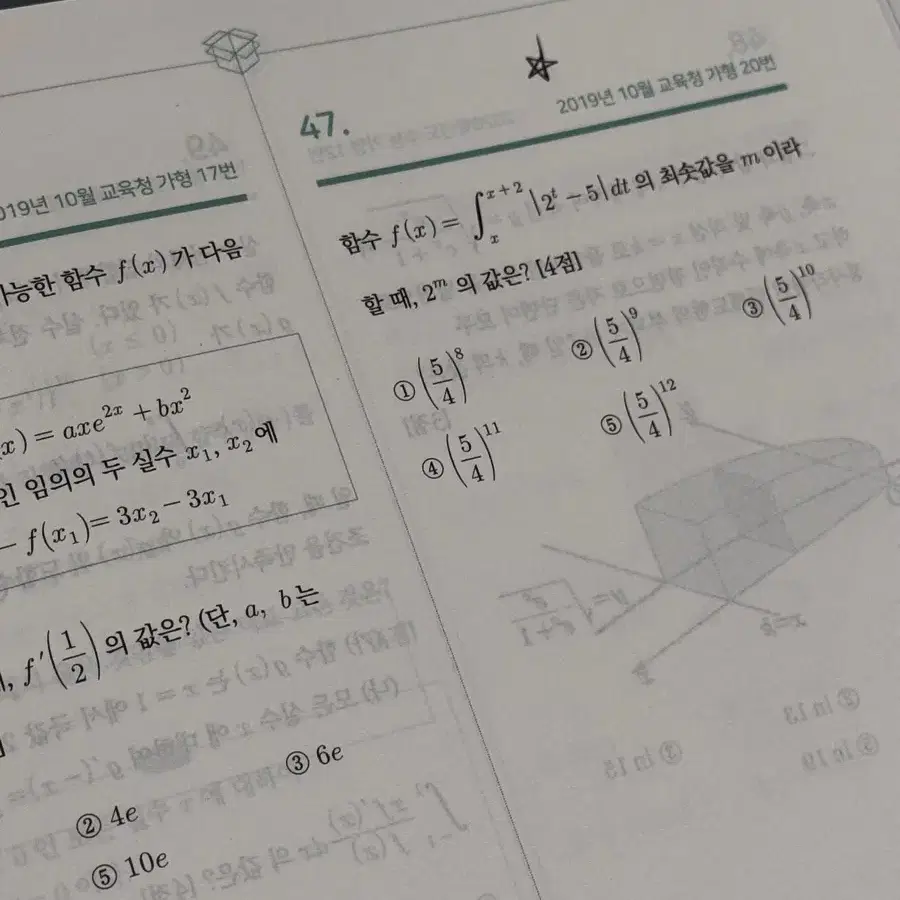 019년 10월 교육청 가형 17번
가능한 함수 f(x)가 다음
x) = axe^{2x} + bx^2
인 임의의 두 실수 x_1, x_2에
- f(x_1) = 3x_2 - 3x_1
, f'(1/2)의 값은? (단, a, b는
③ 6e
② 4e
⑤ 10e
47.
2019년 10월 교육청 가형 20번
함수 f(x) = ∫_x^{x+2} |2^t - 5| dt의 최솟값을 m이라
할 때, 2^m의 값은? [4점]
① (5/4)^8 ② (5/4)^9 ③ (5/4)^10
④ (5/4)^11 ⑤ (5/4)^12